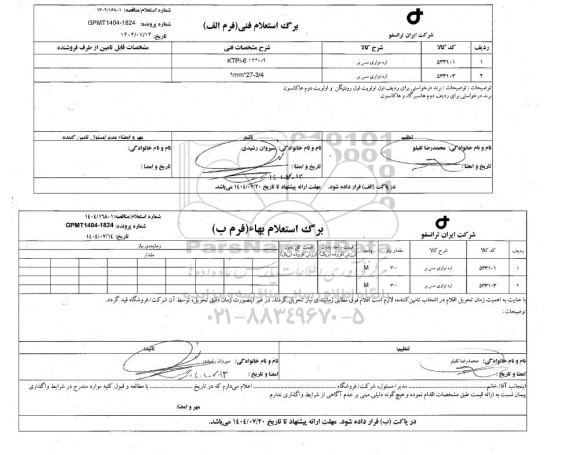 شماره استعلام/مناقصه: ۱۴۰۴/۱۶۸۰۱
برگ استعلام فنی(فرم الف)
شماره پرونده: GPMT1404-1824
شرکت ایران ترانسفو
تاریخ: ۱۴۰۴/۰۷/۱۳
ردیف کد کالا شرح کالا شرح مشخصات فنی مشخصات قابل تامین از طرف فروشنده
۱ ۵۳۳۱۰۱ اره نواری مس بر KTPI-6
۲ ۵۳۳۱۰۳ اره نواری مس بر 1mm*27-3/4
توضیحات : توضیحات : برند درخواستی برای ردیف اول اولویت اول رونتیگن و اولویت دوم هاکانسون
برند درخواستی برای ردیف دوم هانسبرگ و هاکانسون
تنظیم: تائید: مهر و امضاء مدیر/مسئول تامین کننده
نام و نام خانوادگی: محمدرضا لقیلو نام و نام خانوادگی: سیروان رشیدی نام و نام خانوادگی:
تاریخ و امضا : تاریخ و امضا : تاریخ و امضا :
در پاکت (الف) قرار داده شود. مهلت ارائه پیشنهاد تا تاریخ ۱۴۰۴/۰۷/۲۰ می‌باشد.
شماره استعلام/مناقصه: ۱۴۰۴/۱۶۸۰۱
برگ استعلام بهاء(فرم ب)
شماره پرونده: GPMT1404-1824
شرکت ایران ترانسفو
تاریخ: ۱۴۰۴/۰۷/۱۴
ردیف کد کالا شرح کالا مقدار نیاز واحد قیمت واحد بدون ارزش افزوده (ریال) قیمت کل بدون ارزش افزوده (ریال) زمانبندی نیاز
مقدار
۱ ۵۳۳۱۰۱ اره نواری مس بر ۳۰۰ M
۲ ۵۳۳۱۰۳ اره نواری مس بر ۳۰۰ M
ParsNamadData
۰۲۱-۸۸۳۴۹۶۷۰-۵
با عنایت به اهمیت زمان تحویل اقلام در انتخاب تامین کننده، لازم است اقلام فوق مطابق زمانبندی نیاز تحویل گردند. در غیر اینصورت زمان دقیق تحویل، توسط آن شرکت/فروشگاه قید گردد.
توضیحات :
تنظیم: تائید:
نام و نام خانوادگی: محمدرضا لقیلو نام و نام خانوادگی: سیروان رشیدی
امضا و تاریخ : امضا و تاریخ :
اینجانب آقا/خانم مدیر/مسئول، شرکت/فروشگاه اعلام می‌دارم که در تاریخ با مطالعه و قبول کلیه موارد مندرج در شرایط واگذاری
پیمان نسبت به ارائه قیمت طبق مشخصات اقدام نموده و هیچ‌گونه دلیلی مبنی بر عدم آگاهی از شرایط واگذاری ندارم
مهر و امضا:
در پاکت (ب) قرار داده شود. مهلت ارائه پیشنهاد تا تاریخ ۱۴۰۴/۰۷/۲۰ می‌باشد.